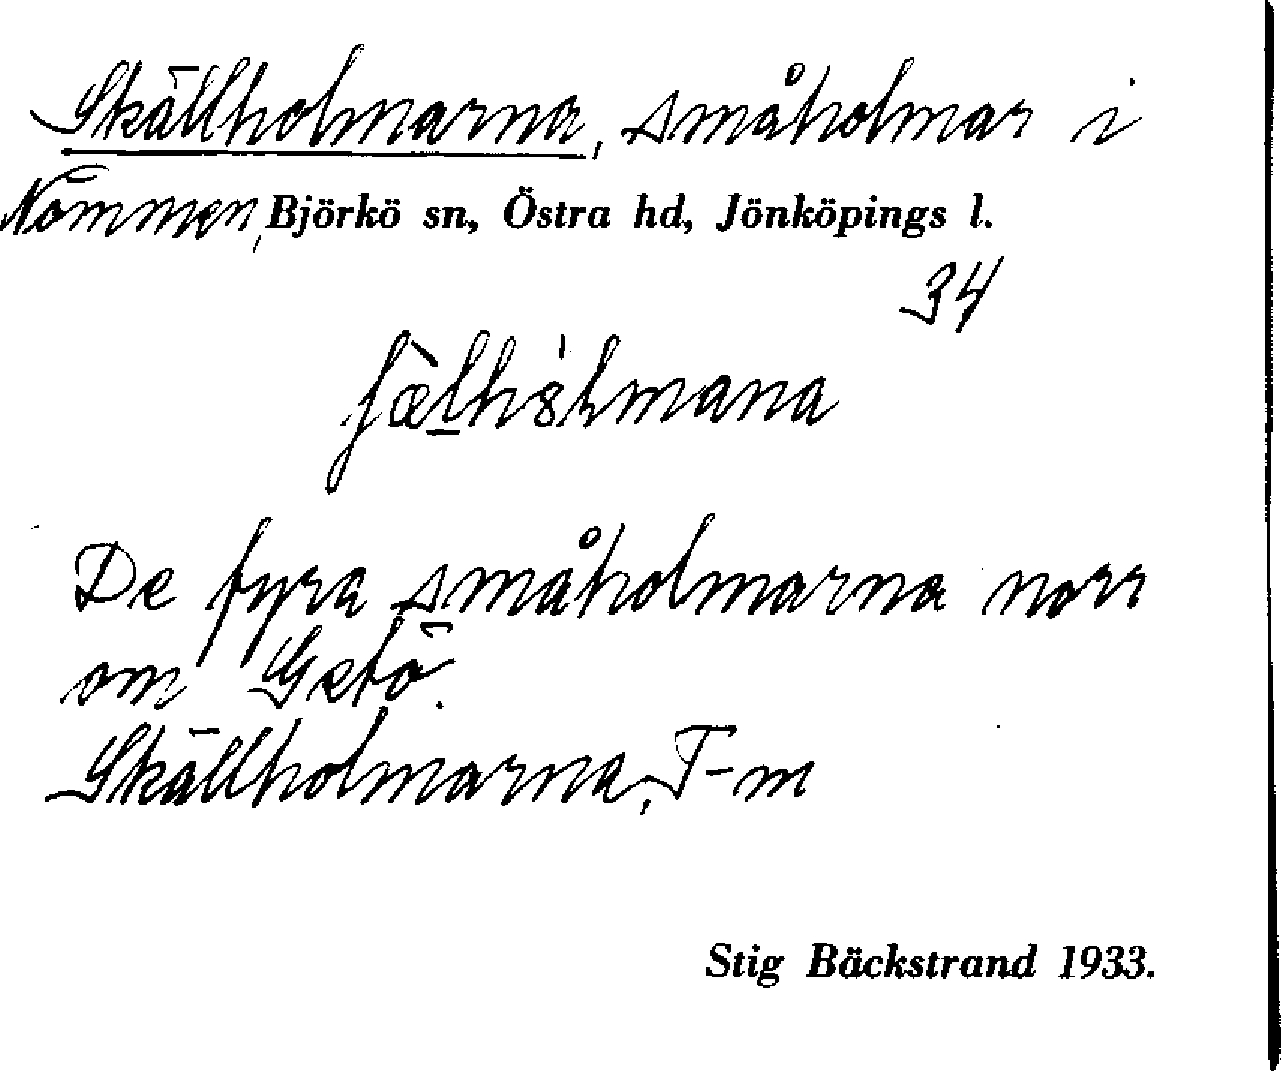 Skällholmarna, småholmar i
Nömmen, Björkö sn, Östra hd, Jönköpings l.
34
De fyra småholmarna norr
om Getö.
Skällholmarna, T-m
Stig Bäckstrand 1933.